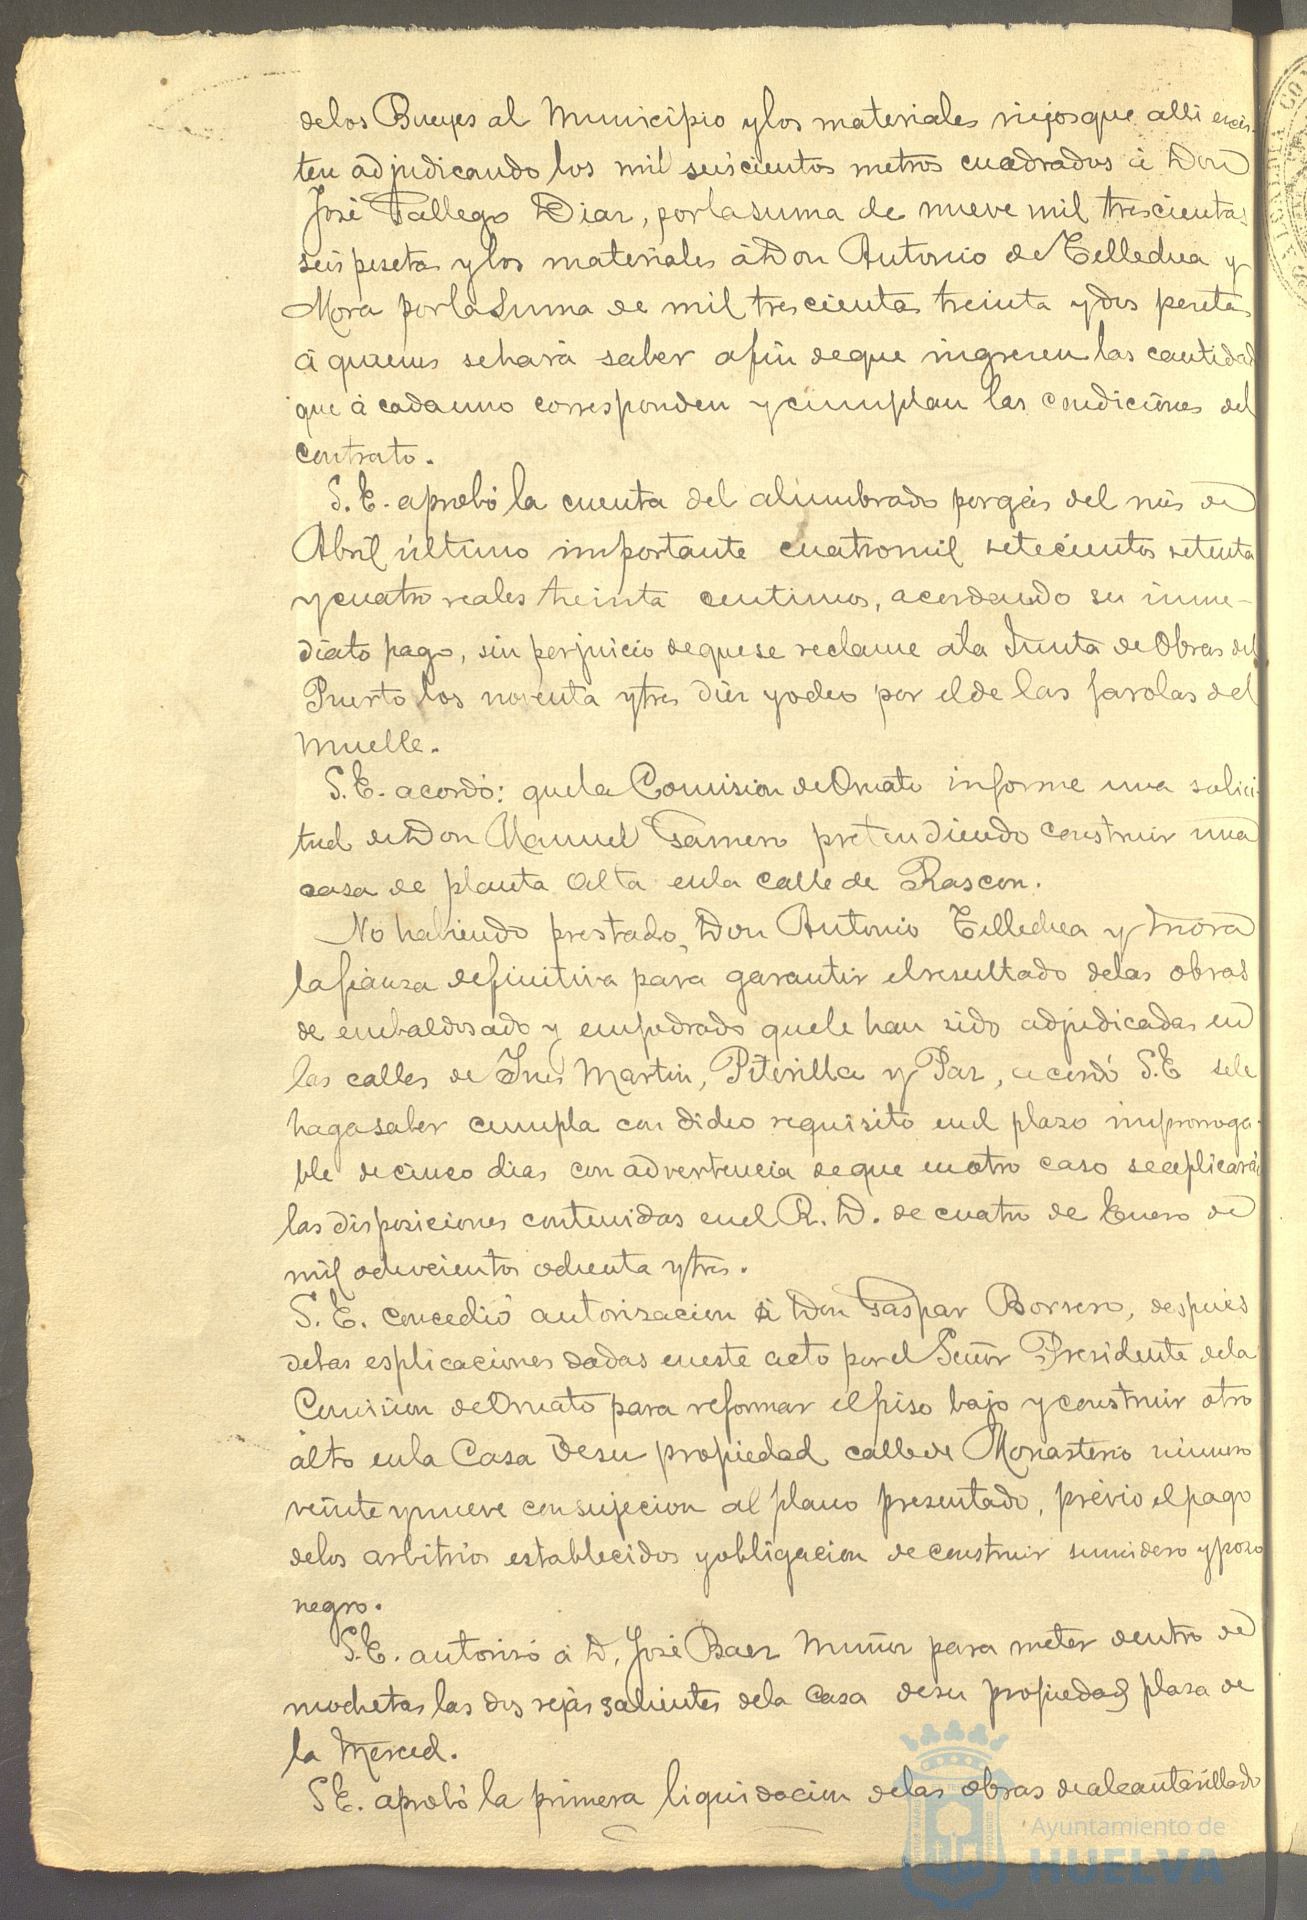 de los Bueyes al Municipio y los materiales viejos que alli exis-
ten adjudicando los mil seiscientos metros cuadrados á Don
José Gallego Diaz, por la suma de nueve mil trescientas
seis pesetas y los materiales á Don Antonio de Tellechea y
Mora por la suma de mil trescientas treinta y dos pesetas
á quienes se hará saber a fin de que ingresen las cantidad
que á cada uno corresponden y cumplan las condiciones del
contrato.
S. E. aprobó la cuenta del alumbrado por gas del mes de
Abril último importante cuatro mil setecientos setenta
y cuatro reales treinta centimos, acordando su inme-
diato pago, sin perjuicio de que se reclame a la Junta de Obras del
Puerto los noventa y tres diez y ocho por el de las farolas del
muelle.
S. E. acordó: que la Comision de Ornato informe una solici-
tud de Don Manuel Garrero pretendiendo construir una
casa de planta alta en la calle de Rascon.
No habiendo prestado, Don Antonio Tellechea y Mora
la fianza definitiva para garantir el resultado de las obras
de embaldosado y empedrado que le han sido adjudicadas en
las calles de Ines Martin, Piterilla y Paz, acordó S. E se le
haga saber cumpla con dicho requisito en el plazo improrroga-
ble de cinco dias con advertencia de que en otro caso se aplicará
las disposiciones contenidas en el R. D. de cuatro de Enero de
mil ochocientos ochenta y tres.
S. E. concedió autorizacion á Don Gaspar Borrero, despues
de las esplicaciones dadas en este acto por el Señor Presidente de la
Comision de Ornato para reformar el piso bajo y construir otro
alto en la Casa de su propiedad calle de Monasterio número
veinte y nueve con sujecion al plano presentado, prévio el pago
de los arbitrios establecidos y obligacion de construir sumidero y pozo
negro.
S. E. autorizó á D. José Baez Muñoz para meter dentro de
mochetas las dos rejas salientes de la Casa de su propiedad plaza de
la Merced.
S E. aprobó la primera liquidacion de las obras de alcantarillado
Ayuntamiento de
HUELVA